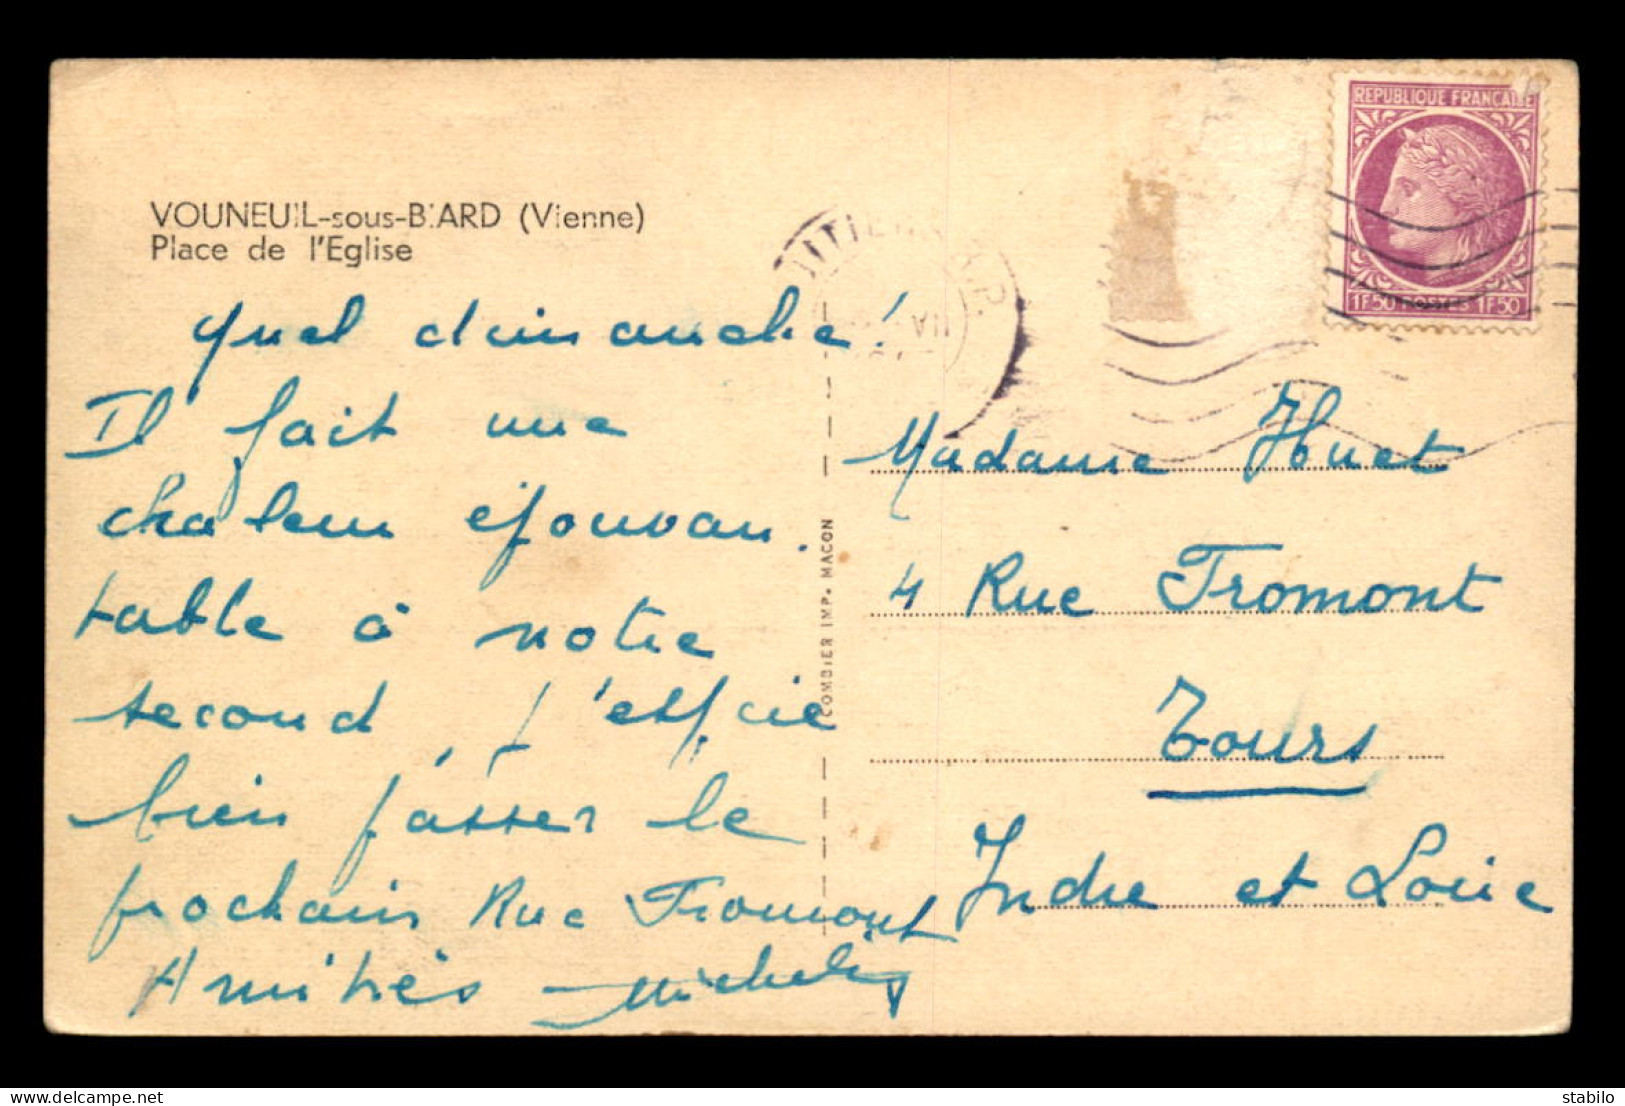 VOUNEUIL-sous-BIARD (Vienne)
Place de l'Eglise
Quel dimanche!
Il fait une
chaleur épouvan.
table à notre
second, j'espère
bien passer le
prochain Rue Fromont
Amitiés
COMBIER IMP. MACON
REPUBLIQUE FRANÇAISE
1F50 POSTES 1F50
Madame Huet
4 Rue Fromont
Tours
Indre et Loire
delcampe.net
stabilo